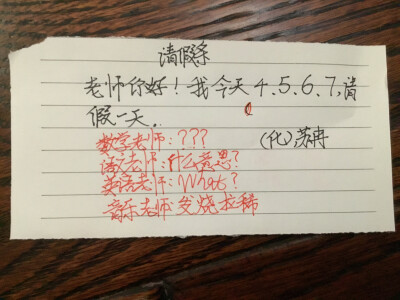 请假条
老师你好!我今天4.5.6.7,请
假一天.
(代)苏冉
数学老师:???
语文老师:什么意思?
英语老师:What?
音乐老师发烧拉稀